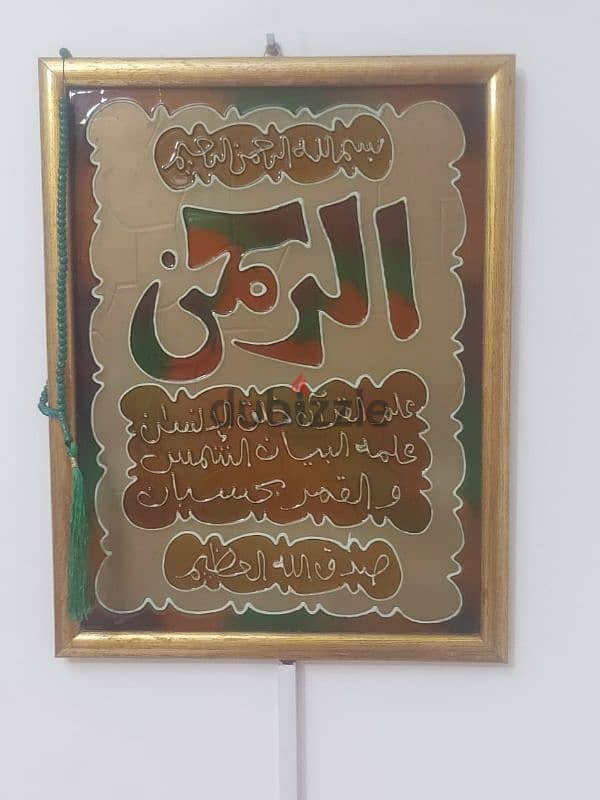 بسم الله الرحمن الرحيم
الرحمن
علم القرآن خلق الإنسان
علمه البيان الشمس
والقمر بحسبان
صدق الله العظيم
dubizzle